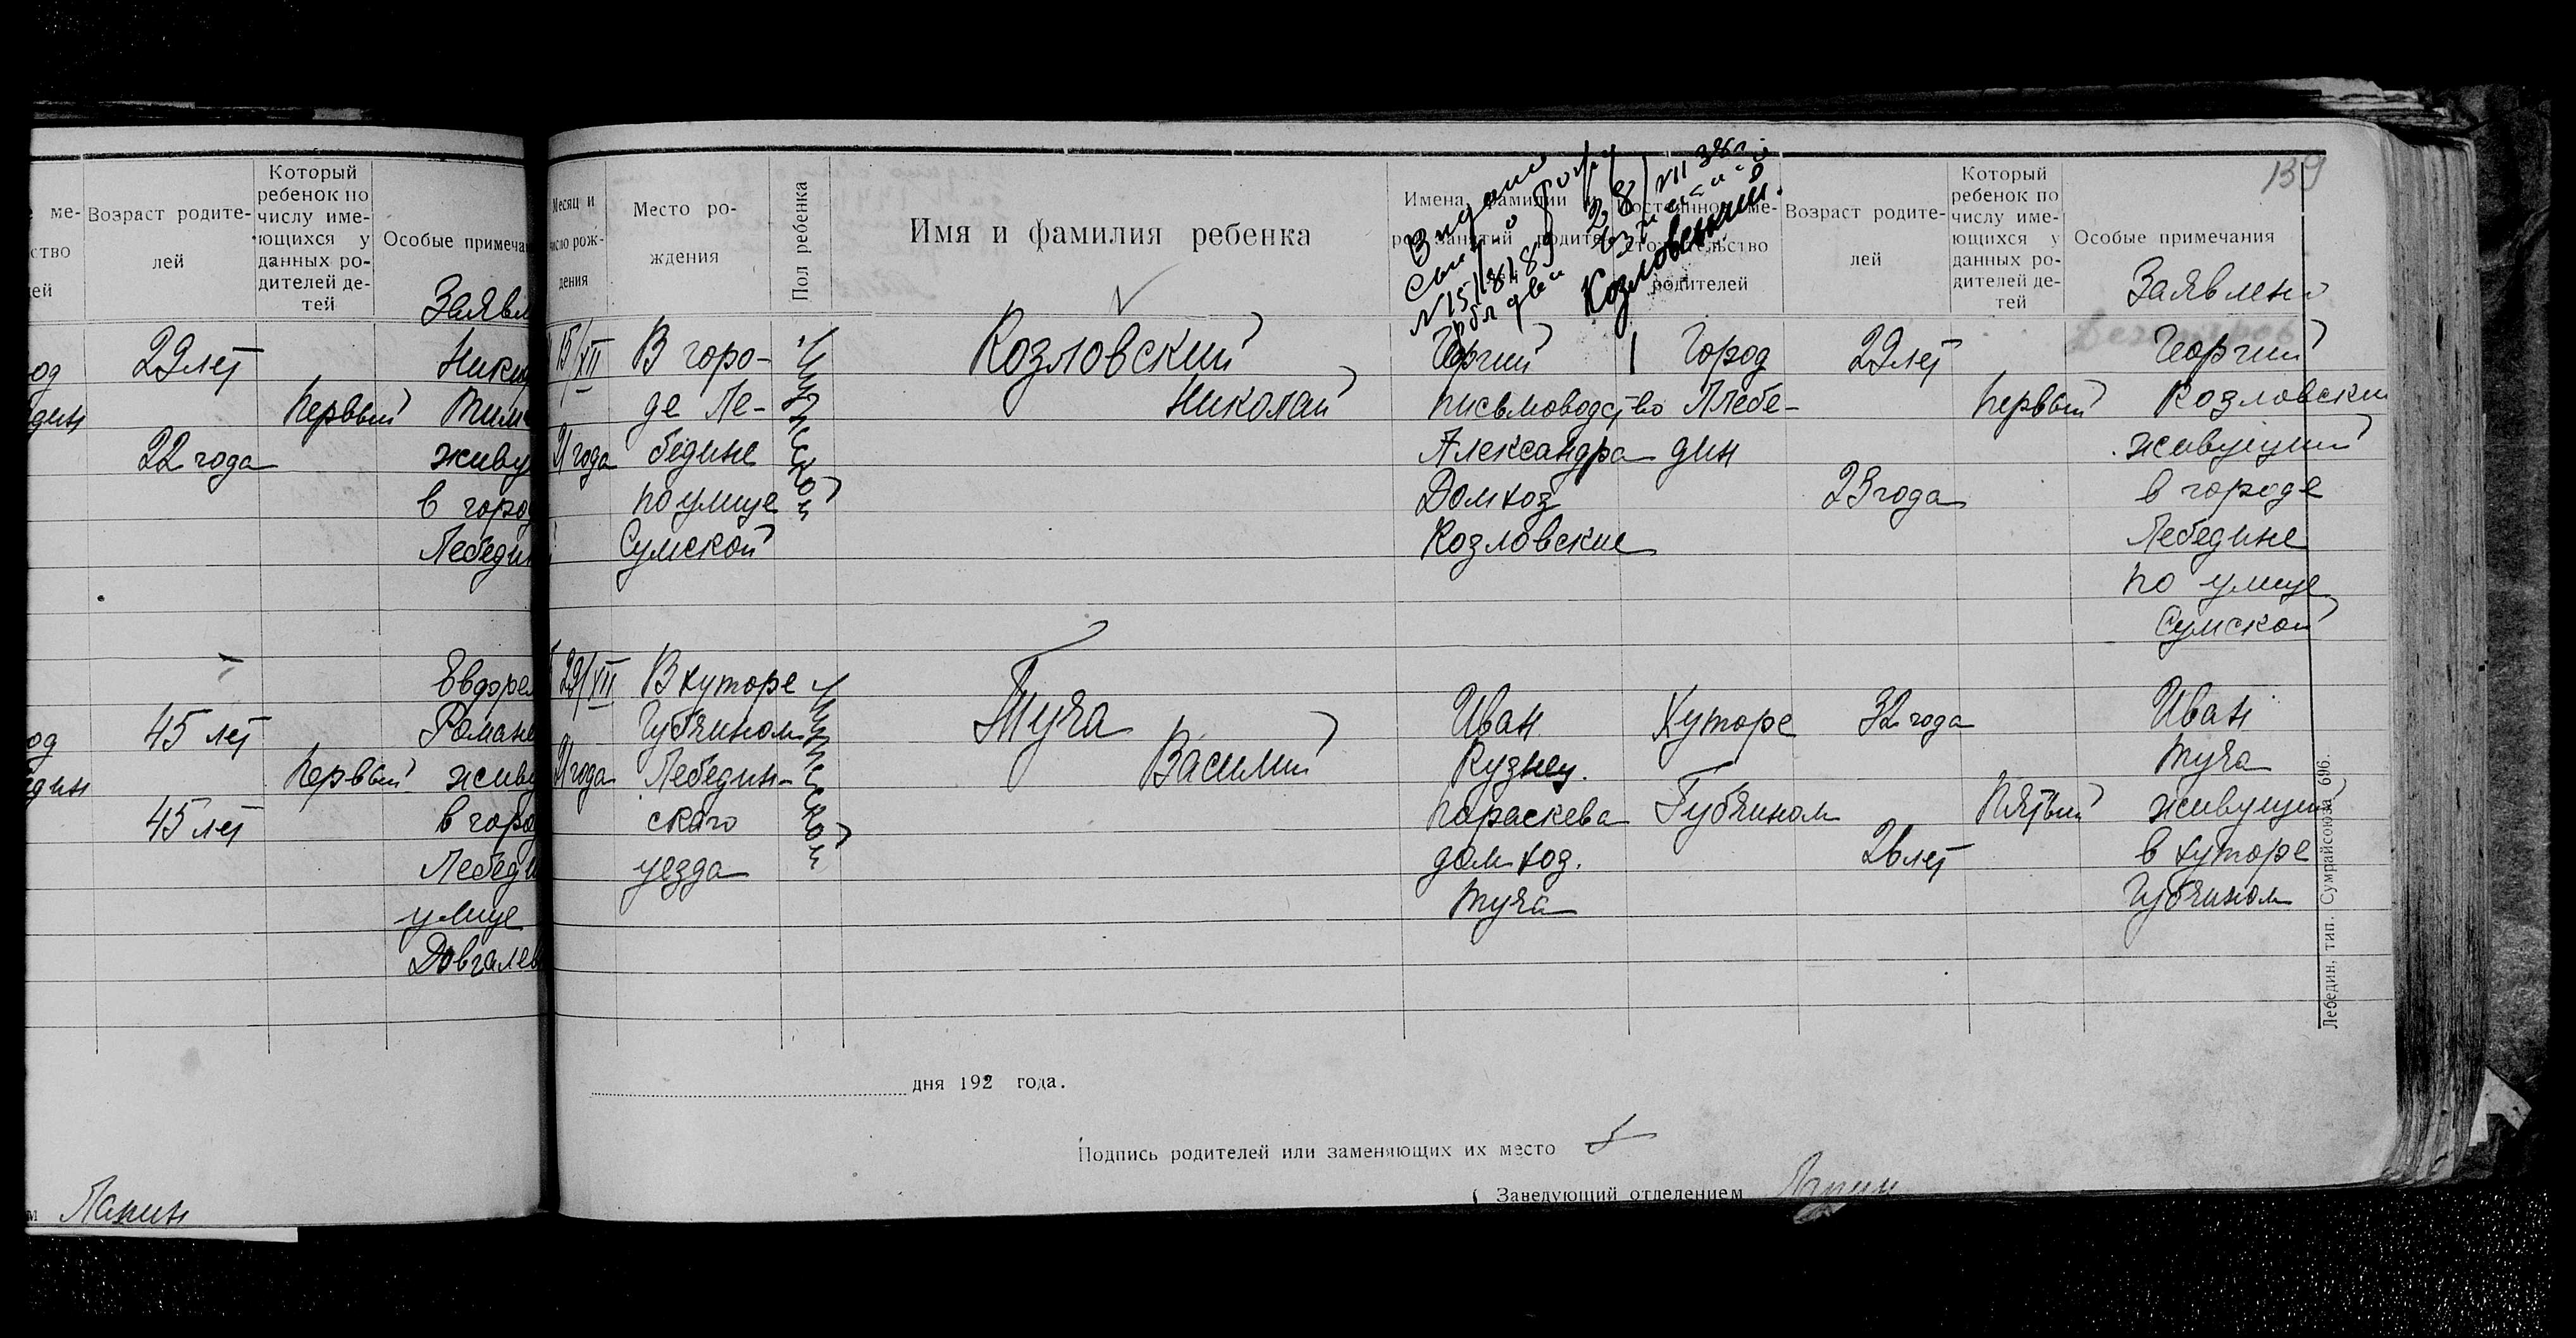 Возраст родите-
лей
Который
ребенок по
числу име-
ющихся у
данных ро-
дителей де-
тей
Особые примеча
Заявл
29 лет
Первый
22 года
живу
в горо
Лебедин
45 лет
Первый
живу
45 лет
в горо
Лебеди
улице
Довгалев
139
Месяц и
число рож-
дения
Место ро-
ждения
Пол ребенка
Имя и фамилия ребенка
Имена, фамилии и
род занятий родите
Постоянное ме-
стожительство
родителей
Возраст родите-
лей
Который
ребенок по
числу име-
ющихся у
данных ро-
дителей де-
тей
Особые примечания
Заявлено
Козловский
15/XII
21 года
В горо-
де Ле-
бедине
по улице
Сумской
Мужской
Козловский
Николай
Георгий
письмоводство
Александра
Домхоз
Козловские
Город
Лебе-
дин
29 лет
23 года
Первый
Георгий
Козловский
живущий
в городе
Лебедине
по улице
Сумской
29/XII
21 года
В хуторе
Губчином
Лебедин-
ского
уезда
Мужской
Туча
Василий
Иван
Кузнец.
Параскева
домхоз.
Туча
Хуторе
Губчином
32 года
26 лет
Пятый
Иван
Туча
живущий
в хуторе
Губчином
Лебедин, тип. Сумрайсоюза 696.
дня 192 года.
Подпись родителей или заменяющих их место
Заведующий отделением